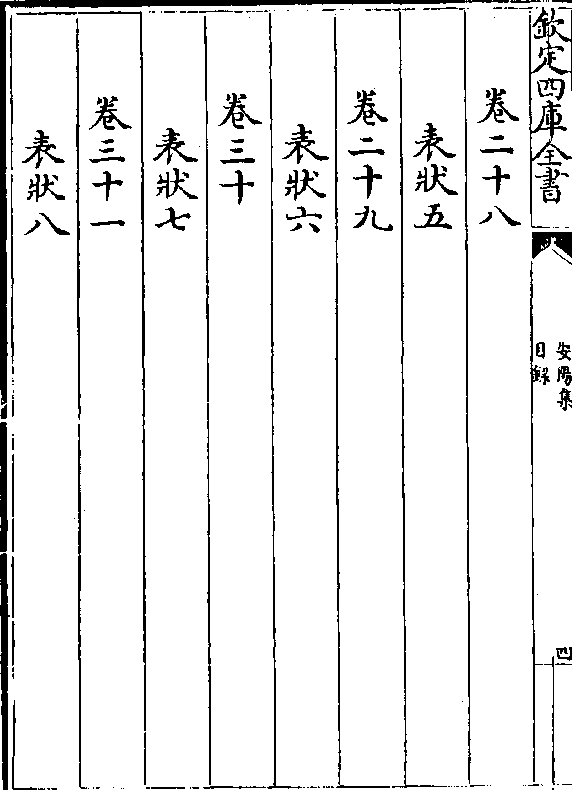 欽定四庫全書
安陽集
目録
四
卷二十八
表狀五
卷二十九
表狀六
卷三十
表狀七
卷三十一
表狀八